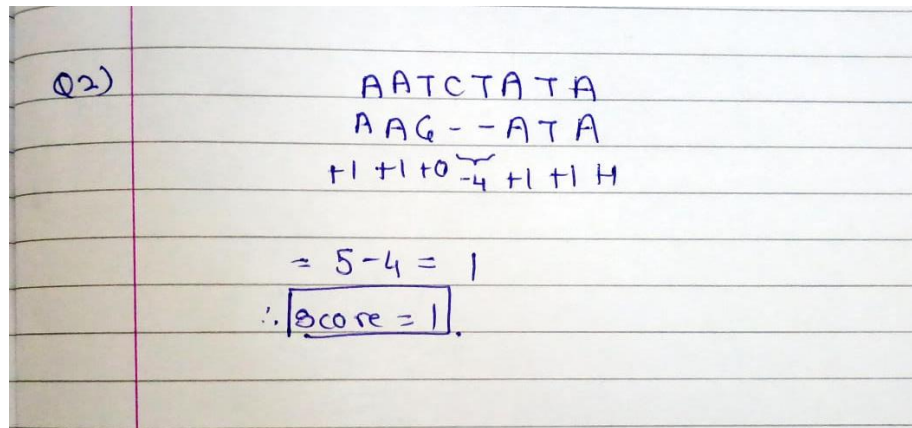 Q2)
AATCTATA
AAG--ATA
+1 +1 +0 -4 +1 +1 +1
= 5-4 = 1
∴ score = 1.